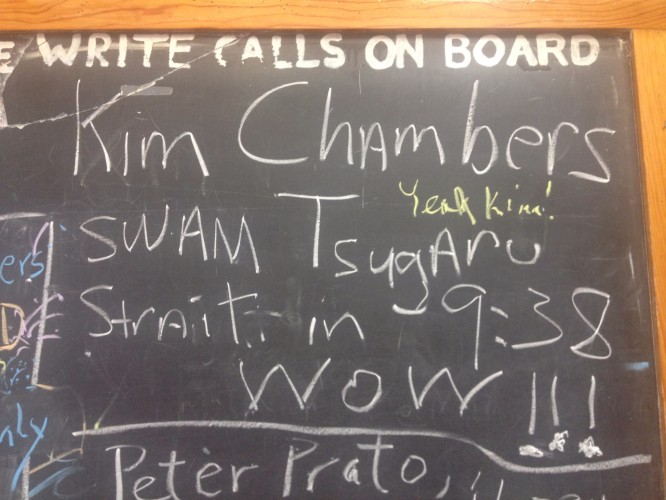 E WRITE CALLS ON BOARD
Kim Chambers
Yeah Kim!
SWAM Tsugaru
ers
Strait in 9:38
WOW!!!
nly
Peter Prato,